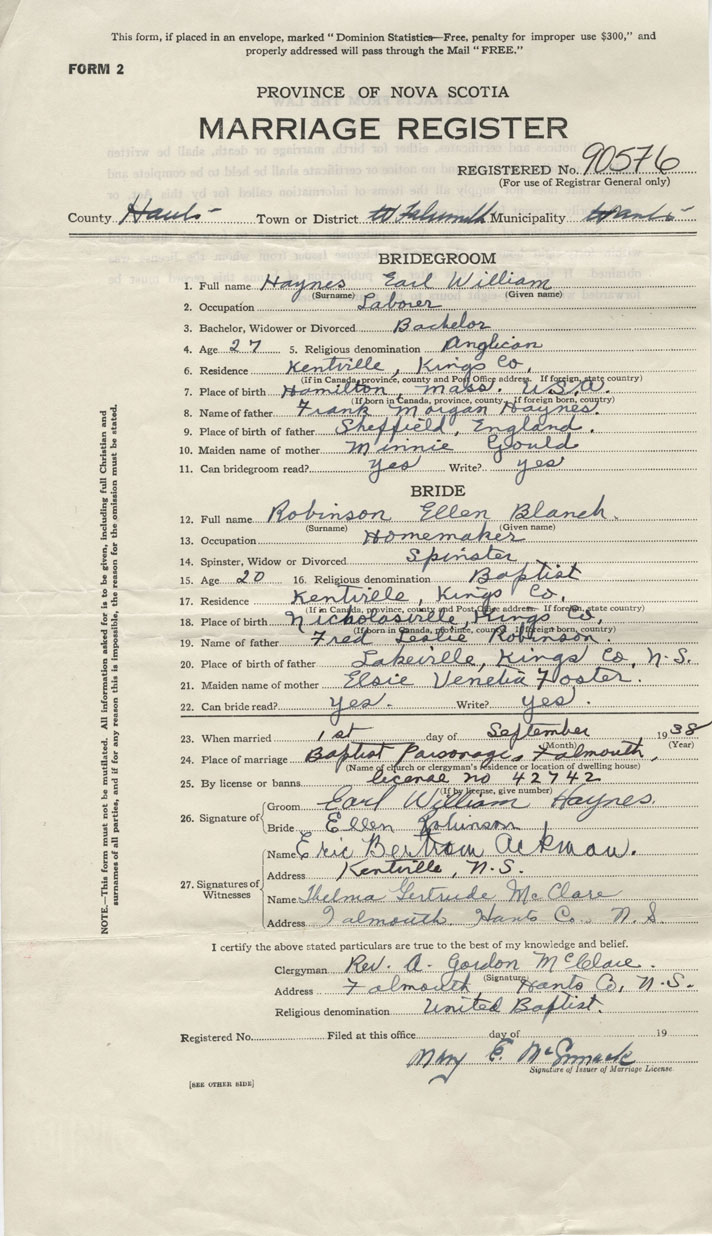 This form, if placed in an envelope, marked "Dominion Statistics—Free, penalty for improper use $300," and
properly addressed will pass through the Mail "FREE."
FORM 2
PROVINCE OF NOVA SCOTIA
MARRIAGE REGISTER
REGISTERED No. 90576
(For use of Registrar General only)
County Hants Town or District Falmouth Municipality W Hants
BRIDEGROOM
1. Full name Haynes Earl William
(Surname) (Given name)
2. Occupation Laborer
3. Bachelor, Widower or Divorced Bachelor
4. Age 27 5. Religious denomination Anglican
6. Residence Kentville, Kings Co,
(If in Canada, province, county and Post Office address. If foreign, state country)
7. Place of birth Hamilton, Mass. U.S.A.
(If born in Canada, province, county. If foreign born, country)
8. Name of father Frank Morgan Haynes.
9. Place of birth of father Sheffield, England.
10. Maiden name of mother Minnie Gould
11. Can bridegroom read? yes Write? yes
BRIDE
12. Full name Robinson Ellen Blanch.
(Surname) (Given name)
13. Occupation Homemaker
14. Spinster, Widow or Divorced Spinster
15. Age 20 16. Religious denomination Baptist
17. Residence Kentville, Kings Co,
(If in Canada, province, county and Post Office address. If foreign, state country)
18. Place of birth Nicholasville, Kings Co,
(If born in Canada, province, county. If foreign born, country)
19. Name of father Fred Leslie Robinson.
20. Place of birth of father Lakeville, Kings Co, N-S.
21. Maiden name of mother Elsie Venetia Foster.
22. Can bride read? yes. Write? yes.
23. When married 1st day of September 1938
(Month) (Year)
24. Place of marriage Baptist Parsonage, Falmouth,
(Name of church or clergyman's residence or location of dwelling house)
25. By license or banns license no 42742
(If by license, give number)
26. Signature of
Groom Earl William Haynes.
Bride Ellen Robinson
27. Signatures of Witnesses
Name Eric Bertram Ackman.
Address Kentville, N.S.
Name Thelma Gertrude McClare
Address Falmouth Hants Co. N.S.
I certify the above stated particulars are true to the best of my knowledge and belief.
Clergyman Rev. A. Gordon McClare.
(Signature)
Address Falmouth Hants Co, N-S.
Religious denomination United Baptist.
Registered No. Filed at this office day of 19
Mary E. McCormack
Signature of Issuer of Marriage License.
[SEE OTHER SIDE]
NOTE.—This form must not be mutilated. All information asked for is to be given, including full Christian and
surnames of all parties, and if for any reason this is impossible, the reason for the omission must be stated.